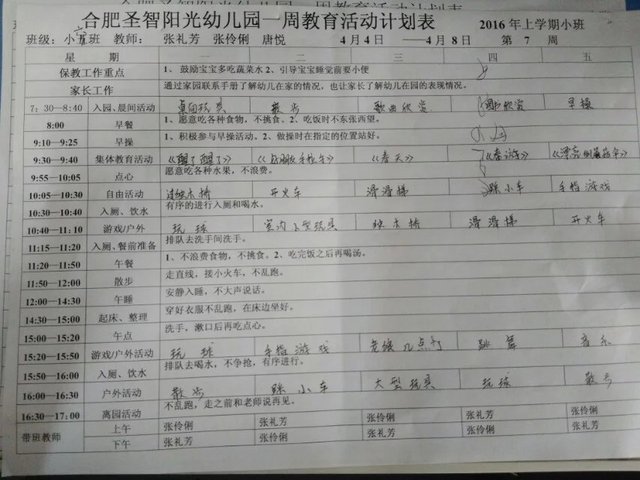 合肥圣智阳光幼儿园一周教育活动计划表 2016年上学期小班
班级：小 班 教师： 张礼芳 张伶俐 唐悦 4月4日 ——4月8日 第 7 周
星 期 一 二 三 四 五
保教工作重点 1、鼓励宝宝多吃蔬菜水 2、引导宝宝睡觉前要小便
家长工作 通过家园联系手册了解幼儿在家的情况，也让家长了解幼儿在园的表现情况。
7：30—8:40 入园、晨间活动 桌面玩具 散步 歌曲欣赏 歌曲欣赏 早操
8:00 早餐 1、愿意吃各种食物，不挑食。2、吃饭时不东张西望。
9:10—9:25 早操 1、积极参与早操活动。2、做操时在指定的位置站好。
9:30—9:40 集体教育活动 《醒了醒了》 《春天》 《春游》
9:55—10:05 点心 愿意吃各种水果，不浪费。
10:05—10:30 自由活动 过独木桥 开火车 滑滑梯 踩小车 手指游戏
10:30—10:40 入厕、饮水 有序的进行入厕和喝水。
10:40—11:10 游戏/户外 玩球 室内小型玩具 独木桥 滑滑梯 开火车
11:15—11:20 入厕、餐前准备 排队去洗手间洗手。
11:20—11:50 午餐 1、不浪费食物，不挑食。2、吃完饭之后再喝汤。
11:50—12:00 散步 走直线，接小火车，不乱跑。
12:00—14:30 午睡 安静入睡，不大声说话。
14:30—15:00 起床、整理 穿好衣服不乱跑，在床边坐好。
15:00—15:20 午点 洗手，漱口后再吃点心。
15:20—15:50 游戏/户外活动 玩球 手指游戏 老狼几点钟 跳舞 音乐
15:50—16:00 入厕、饮水 排队去喝水，不争抢，有序进行。
16:00—16:30 户外活动 散步 踩小车 大型玩具 玩球 散步
16:30—17:00 离园活动 不乱跑，走之前和老师说再见。
带班教师 上午 张伶俐 张礼芳 张伶俐 张礼芳 张伶俐
下午 张礼芳 张伶俐 张礼芳 张伶俐 张礼芳